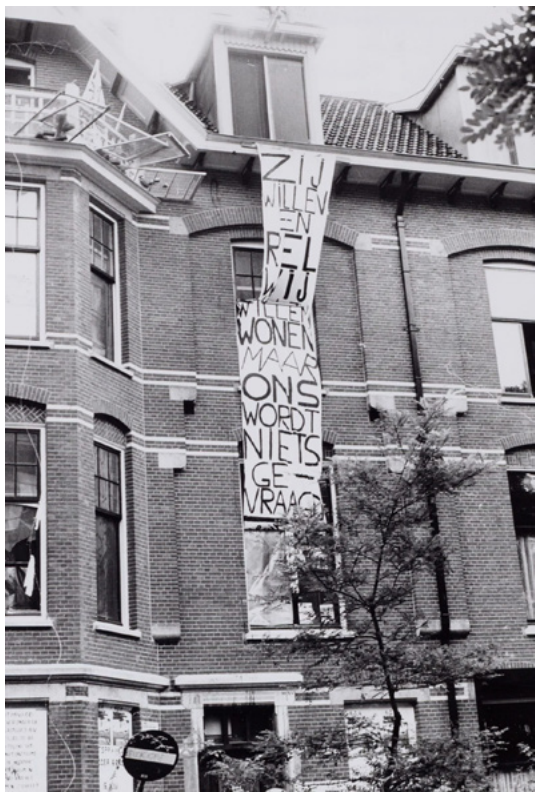 ZIJ
WILLEN
EN
REL
WIJ
WILLEN
WONEN
MAAR
ONS
WORDT
NIETS
GE-
VRAAGD